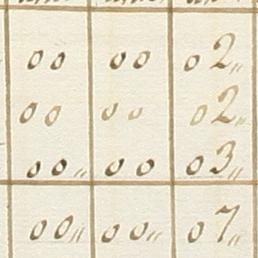 00 00 02"
00 00 02"
00" 00 03"
00" 00" 07"